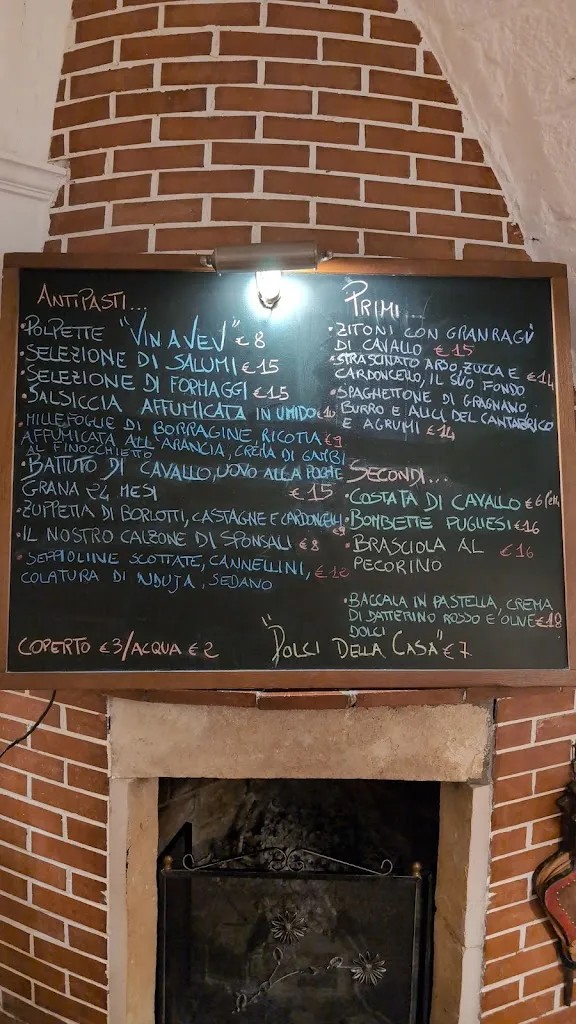 ANTIPASTI...
• POLPETTE "VINAVEV" €8
• SELEZIONE DI SALUMI €15
• SELEZIONE DI FORMAGGI €15
• SALSICCIA AFFUMICATA IN UMIDO
• MILLEFOGLIE DI BORRAGINE, RICOTTA €9
AFFUMICATA ALL'ARANCIA, CREMA DI GAMBI
AL FINOCCHIETTO
• BATTUTO DI CAVALLO, UOVO ALLA POCHE
GRANA 24 MESI €15
• ZUPPETTA DI BORLOTTI, CASTAGNE E CARDONCELLI €9
• IL NOSTRO CALZONE DI SPONSALI €8
• SEPPIOLINE SCOTTATE, CANNELLINI,
COLATURA DI NDUJA, SEDANO
COPERTO €3/ACQUA €2
PRIMI...
• ZITONI CON GRANRAGÙ
DI CAVALLO €15
• STRASCINATO ARSO, ZUCCA E €14
CARDONCELLO, IL SUO FONDO
• SPAGHETTONE DI GRAGNANO,
BURRO E ALICI DEL CANTABRICO
E AGRUMI €14
SECONDI...
• COSTATA DI CAVALLO €6
• BOMBETTE PUGLIESI €16
• BRASCIOLA AL €16
PECORINO
• BACCALA IN PASTELLA, CREMA
DI DATTERINO ROSSO E OLIVE €18
DOLCI
"DOLCI DELLA CASA" €7